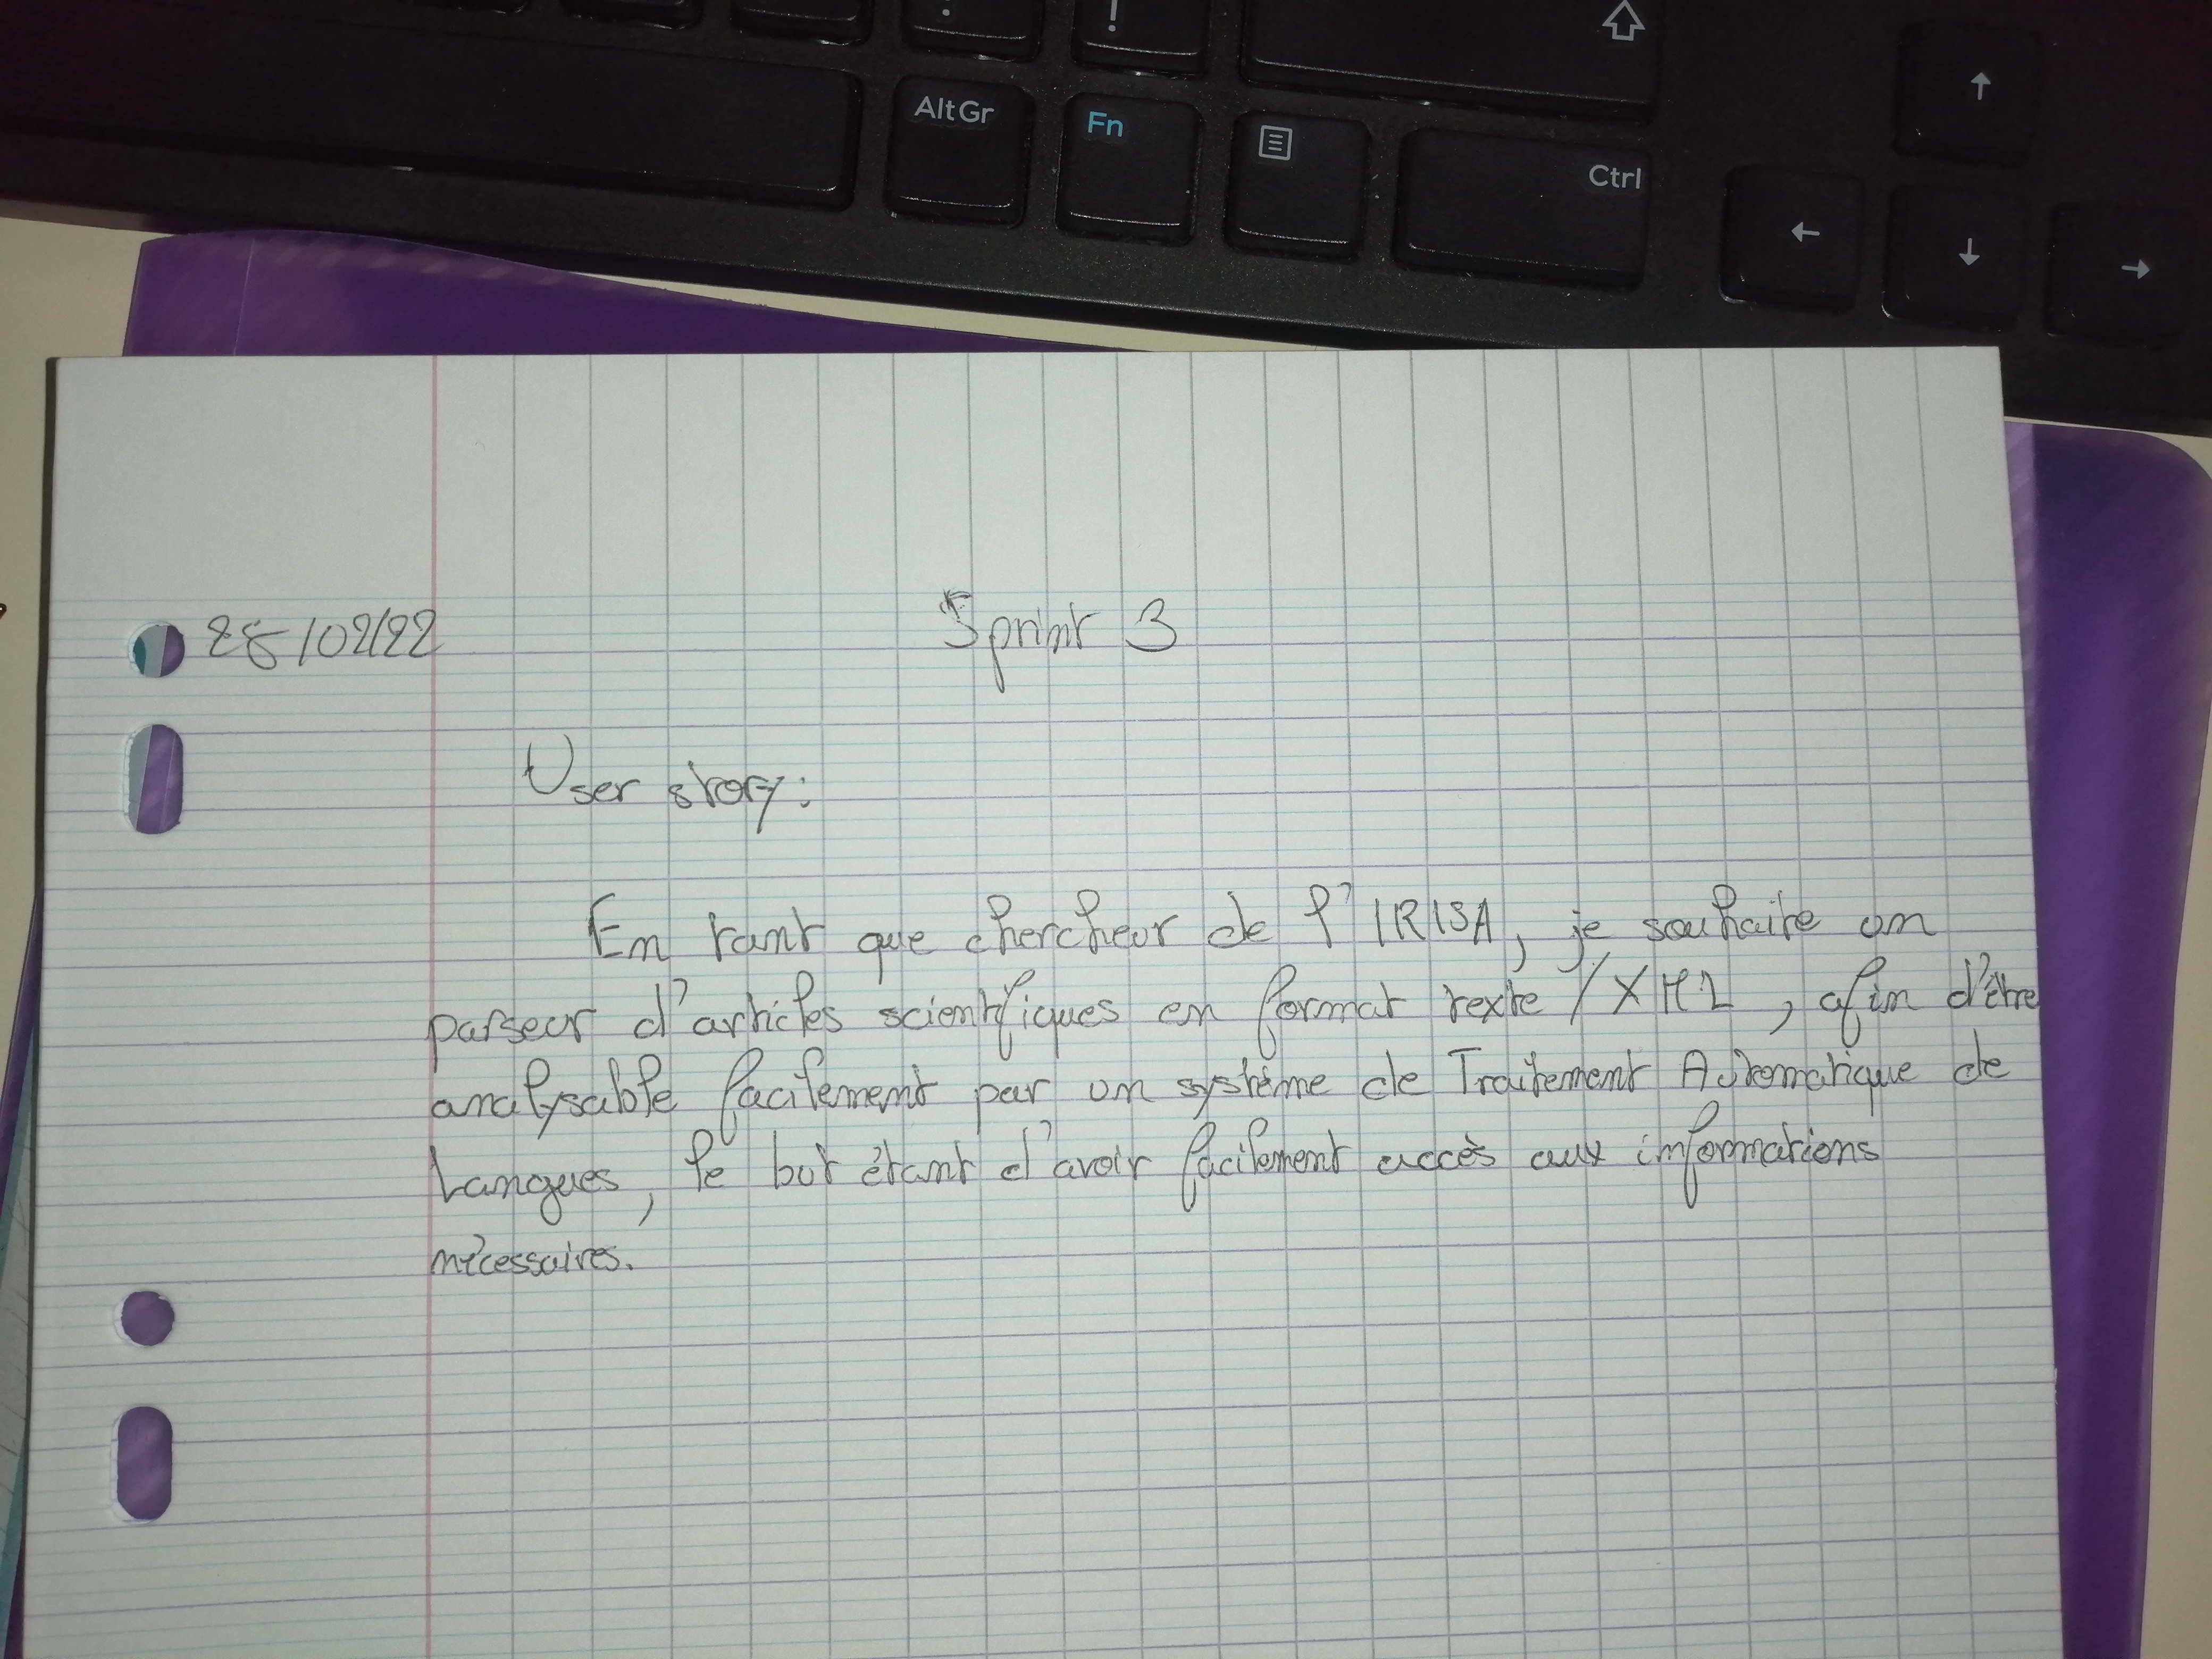 AltGr
Fn
Ctrl
28/02/22
Sprint 3
User story:
En tant que chercheur de l'IRISA, je souhaite un
parseur d'articles scientifiques en format texte / XML, afin d'être
analysable facilement par un système de Traitement Automatique de
Langues, le but étant d'avoir facilement accès aux informations
nécessaires.